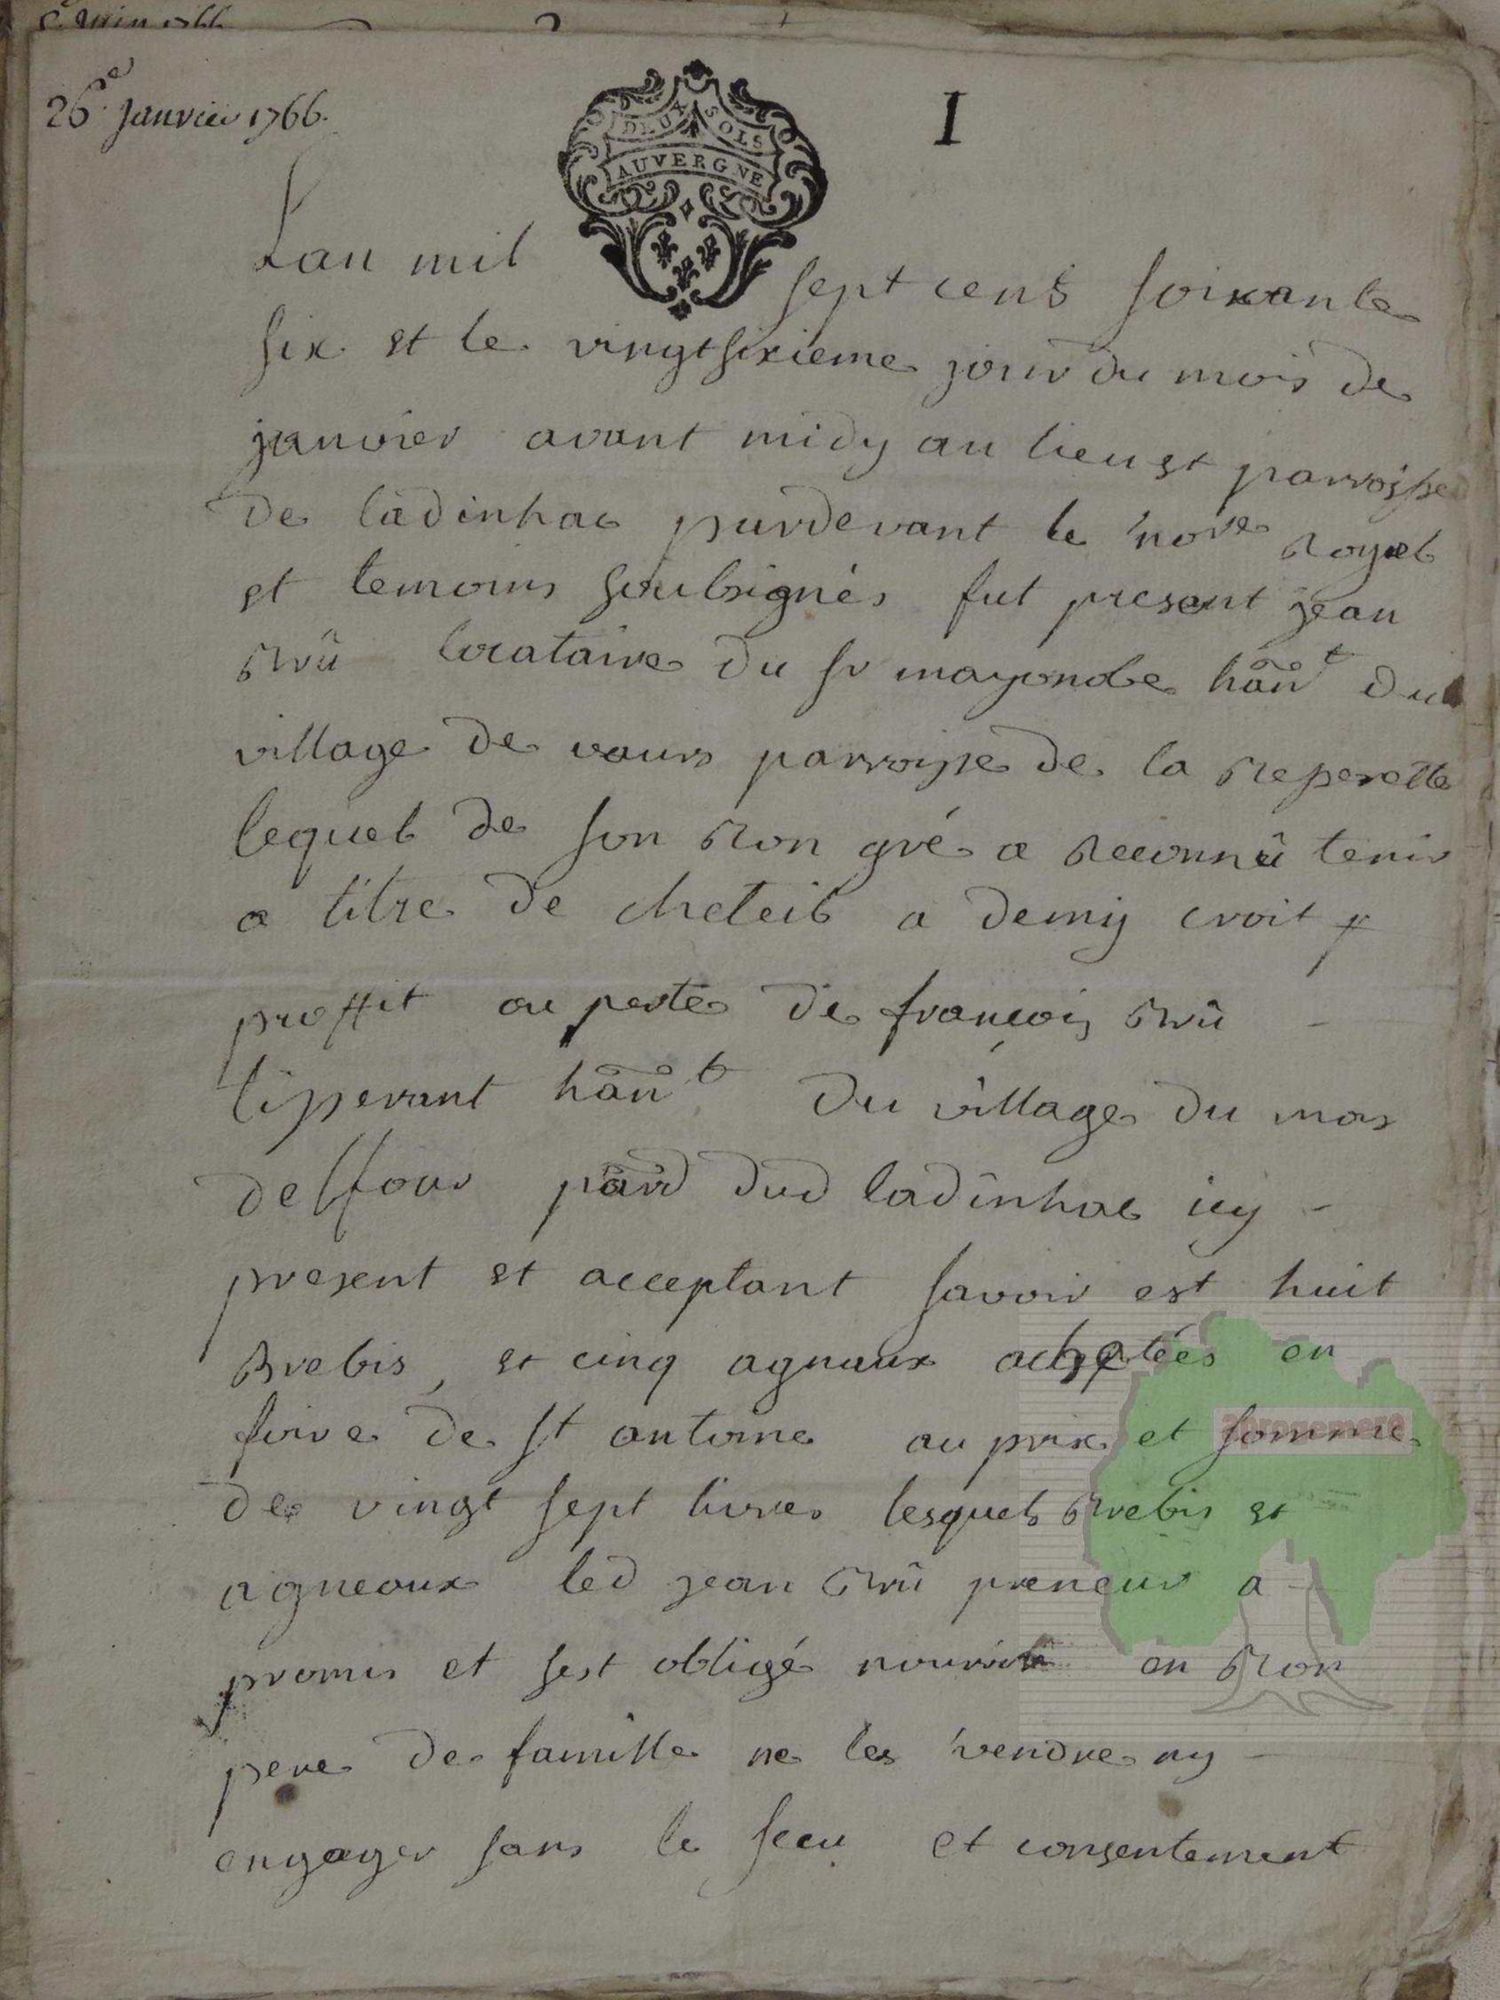 26e Janvier 1766.
I
DEUX SOLS
AUVERGNE
Lan mil sept cens soixante
six et le vingtsixieme jour du mois de
janvier avant midy au lieu et parroisse
de ladinhac pardevant le nore Royal
et temoins soubsignés fut present jean
Brû locataire du sr mayonobe hãnt du
village de vaurs parroisse de la Beperette
lequel de son Bon gré a Reconnû tenir
a titre de cheteil a demy croit
proffit ou perte de françois Brû
tisserant hãnt du village du mas
delfour parr dud ladinhac icy
present et acceptant savoir est huit
Brebis, et cinq agnaux acheptées en
foire de st antoine au prix et somme
de vingt sept livres lesquels Brebis et
agneaux led jean Brû preneur a
promis et sest obligé nourir en Bon
pere de famille ne les vendre ny
engager sans le sceu et consentement